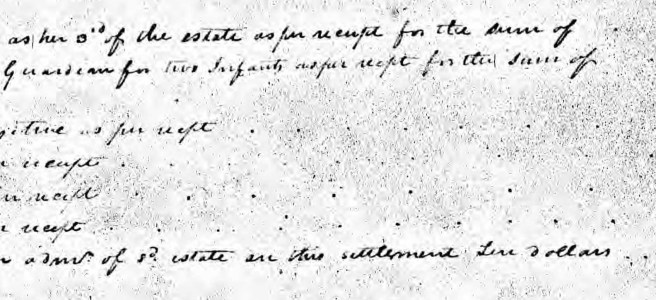 as her 3rd of the estate as per receipt for the sum of
Guardian for two Infants as per recpt for the sum of
as per recpt
receipt
recpt
recpt
admr. of sd. estate on this settlement Ten dollars